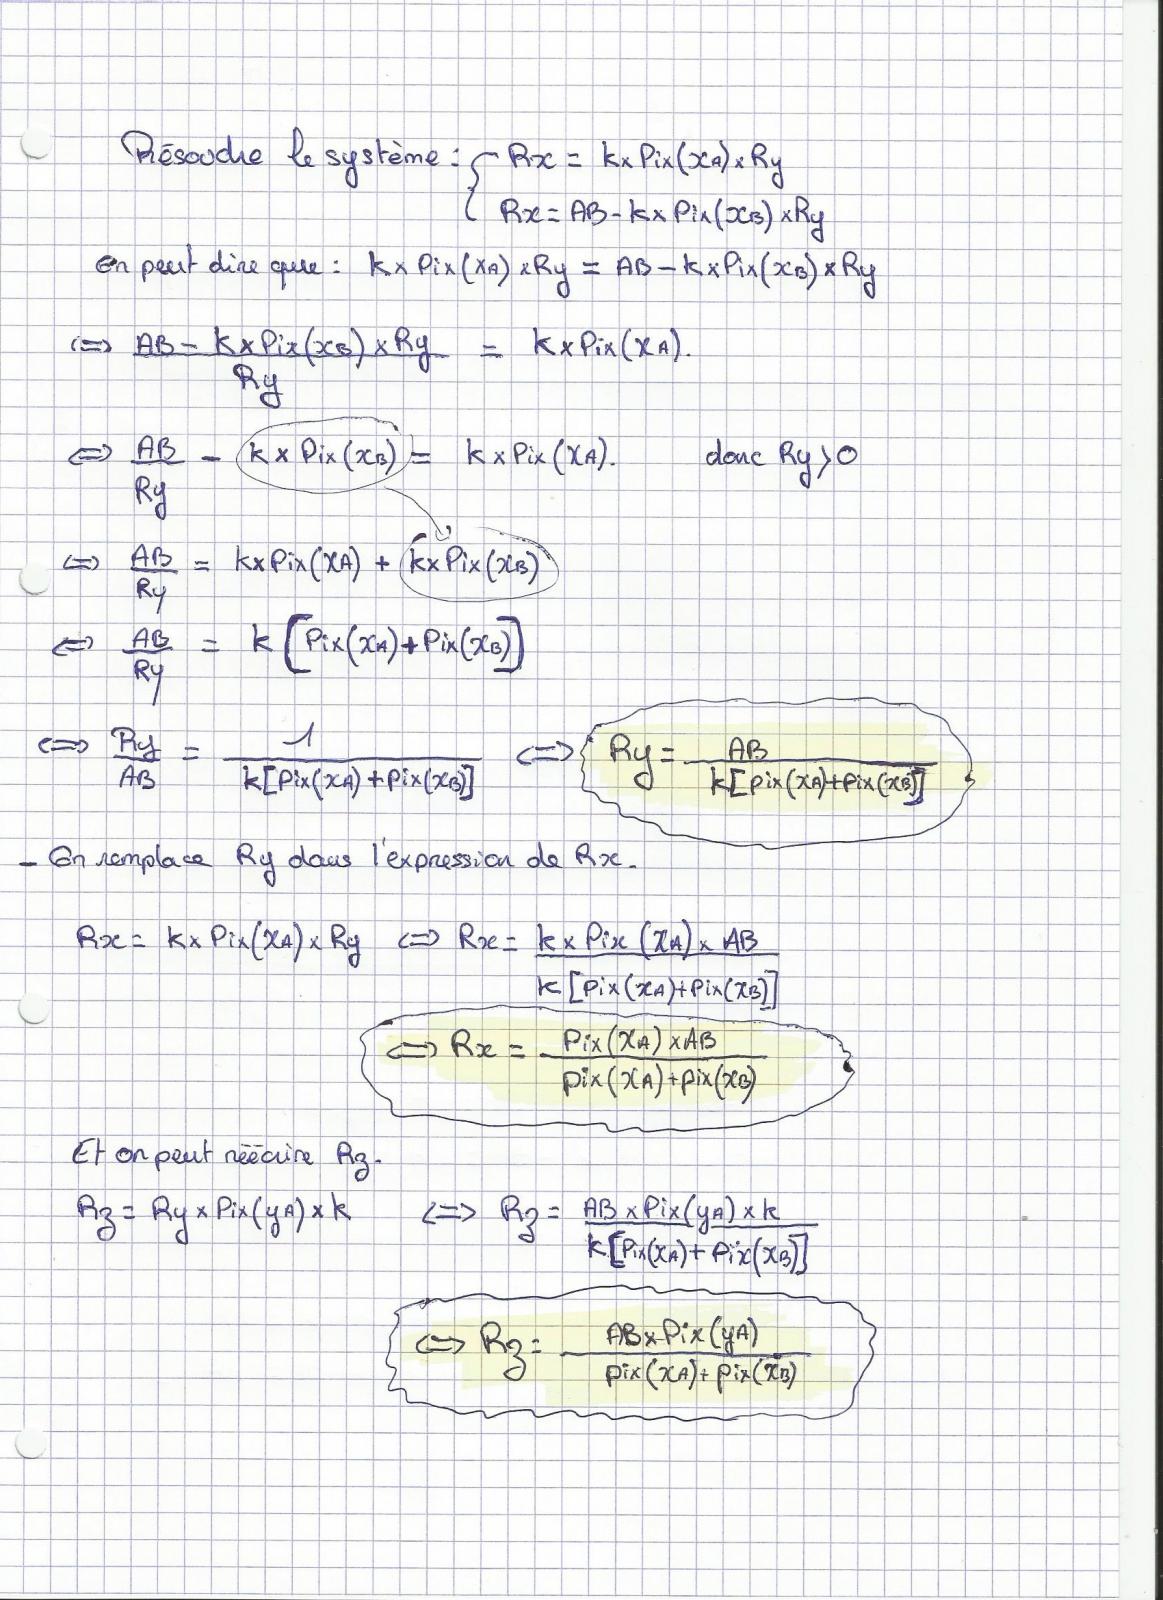 Résoudre le système : { Rx = k x Pix(xA) x Ry
Rx = AB - k x Pix(xB) x Ry
On peut dire que : k x Pix(xA) x Ry = AB - k x Pix(xB) x Ry
<=> (AB - k x Pix(xB) x Ry) / Ry = k x Pix(xA).
<=> AB / Ry - k x Pix(xB) = k x Pix(xA). donc Ry > 0
<=> AB / Ry = k x Pix(xA) + k x Pix(xB)
<=> AB / Ry = k [Pix(xA) + Pix(xB)]
<=> Ry / AB = 1 / k[pix(xA) + pix(xB)] <=> Ry = AB / k[pix(xA) + pix(xB)]
- On remplace Ry dans l'expression de Rx.
Rx = k x Pix(xA) x Ry <=> Rx = k x Pix(xA) x AB / k[pix(xA) + pix(xB)]
<=> Rx = Pix(xA) x AB / pix(xA) + pix(xB)
Et on peut réécrire Rz.
Rz = Ry x Pix(yA) x k <=> Rz = AB x Pix(yA) x k / k[Pix(xA) + Pix(xB)]
<=> Rz = AB x Pix(yA) / pix(xA) + pix(xB)